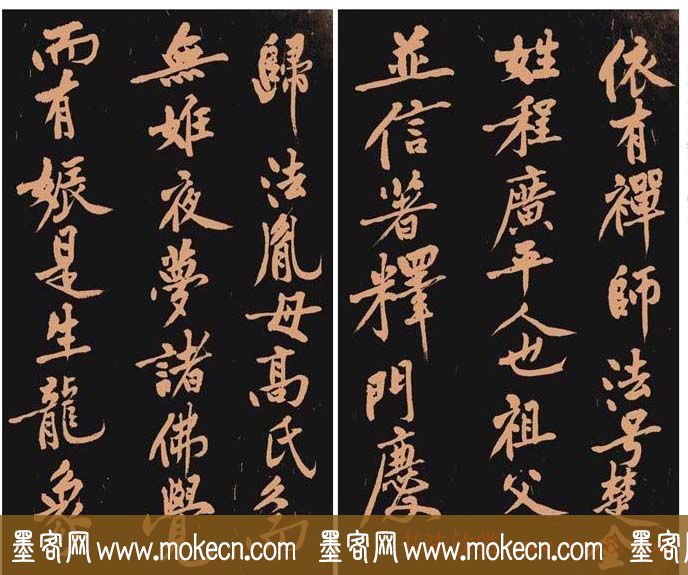 依有禪師法号楚金
姓程廣平人也祖父
並信著釋門慶
歸法胤母高氏
無姙夜夢諸佛覺
而有娠是生龍象
墨客网 www.mokecn.com 墨客网 www.mokecn.com